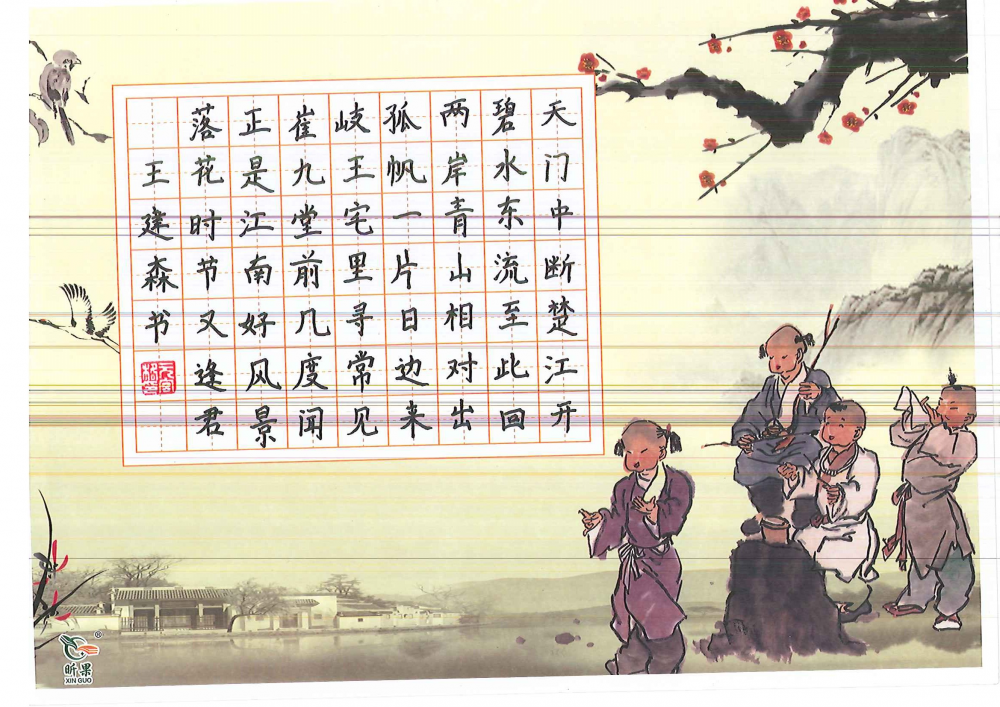 天门中断楚江开
碧水东流至此回
两岸青山相对出
孤帆一片日边来
岐王宅里寻常见
崔九堂前几度闻
正是江南好风景
落花时节又逢君
王建森书
昕果
XIN GUO
®